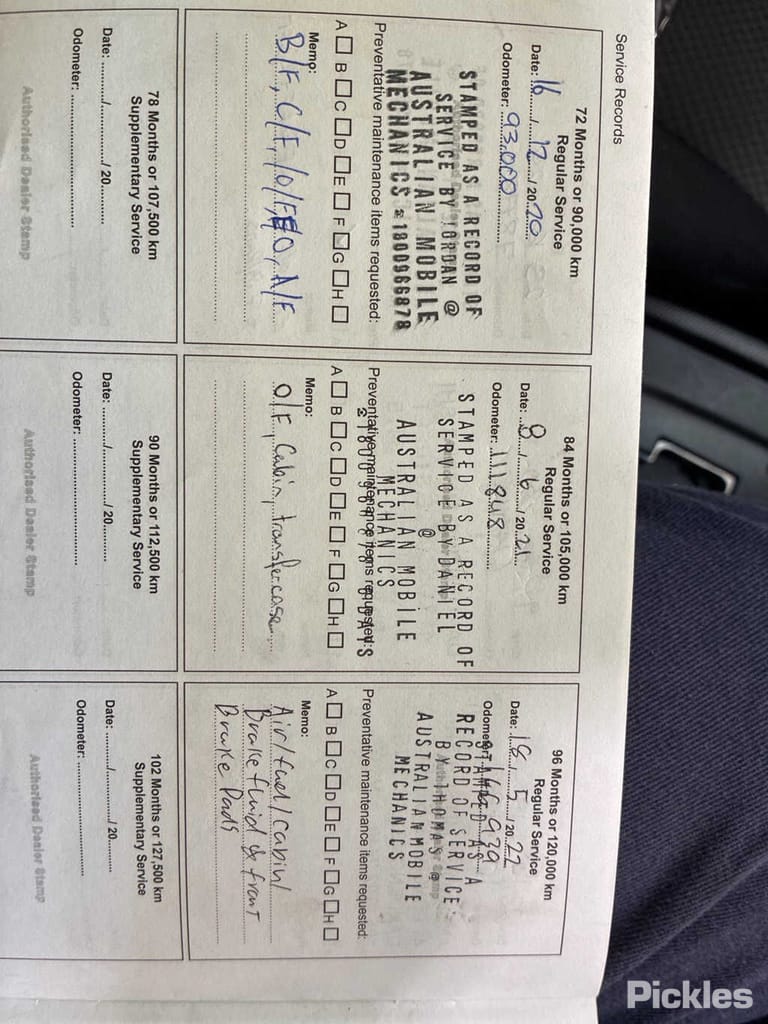 Service Records
72 Months or 90,000 km
Regular Service
Date: 16 / 12 / 2020
Odometer: 93,000
STAMPED AS A RECORD OF
SERVICE BY JORDAN @
AUSTRALIAN MOBILE
MECHANICS ☎ 1800966878
Preventative maintenance items requested:
A □ B □ C □ D □ E □ F □ G □ H □
Memo:
B/F, C/F, O/F, A/F
84 Months or 105,000 km
Regular Service
Date: 8 / 6 / 2021
Odometer: 111848
STAMPED AS A RECORD OF
SERVICE BY DANIEL
@
AUSTRALIAN MOBILE
MECHANICS
Preventative maintenance items requested:
A □ B □ C □ D □ E □ F □ G □ H □
Memo:
O/F, Cabin, transfercase
96 Months or 120,000 km
Regular Service
Date: 18 / 5 / 2022
Odometer:
STAMPED AS A
RECORD OF SERVICE
BY THOMAS @
AUSTRALIAN MOBILE
MECHANICS
Preventative maintenance items requested:
A □ B □ C □ D □ E □ F □ G □ H □
Memo:
Air/fuel/cabin/
Brake fluid & front
Brake Pads
78 Months or 107,500 km
Supplementary Service
Date: ........./........./ 20.........
Odometer:
Authorised Dealer Stamp
90 Months or 112,500 km
Supplementary Service
Date: ........./........./ 20.........
Odometer:
Authorised Dealer Stamp
102 Months or 127,500 km
Supplementary Service
Date: ........./........./ 20.........
Odometer:
Authorised Dealer Stamp
Pickles